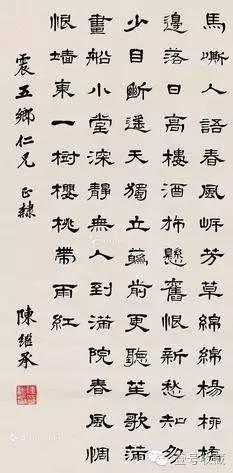 馬嘶人語春風岸芳草綿綿楊柳橋
邊落日高樓酒旆懸舊恨新愁知多
少目斷遙天獨立蘤前更聽笙歌滿
畫船小堂深靜無人到滿院春風惆
悵墻東一樹櫻桃帶雨紅
震五鄉仁兄 正隸
陳繼承
壹号收藏